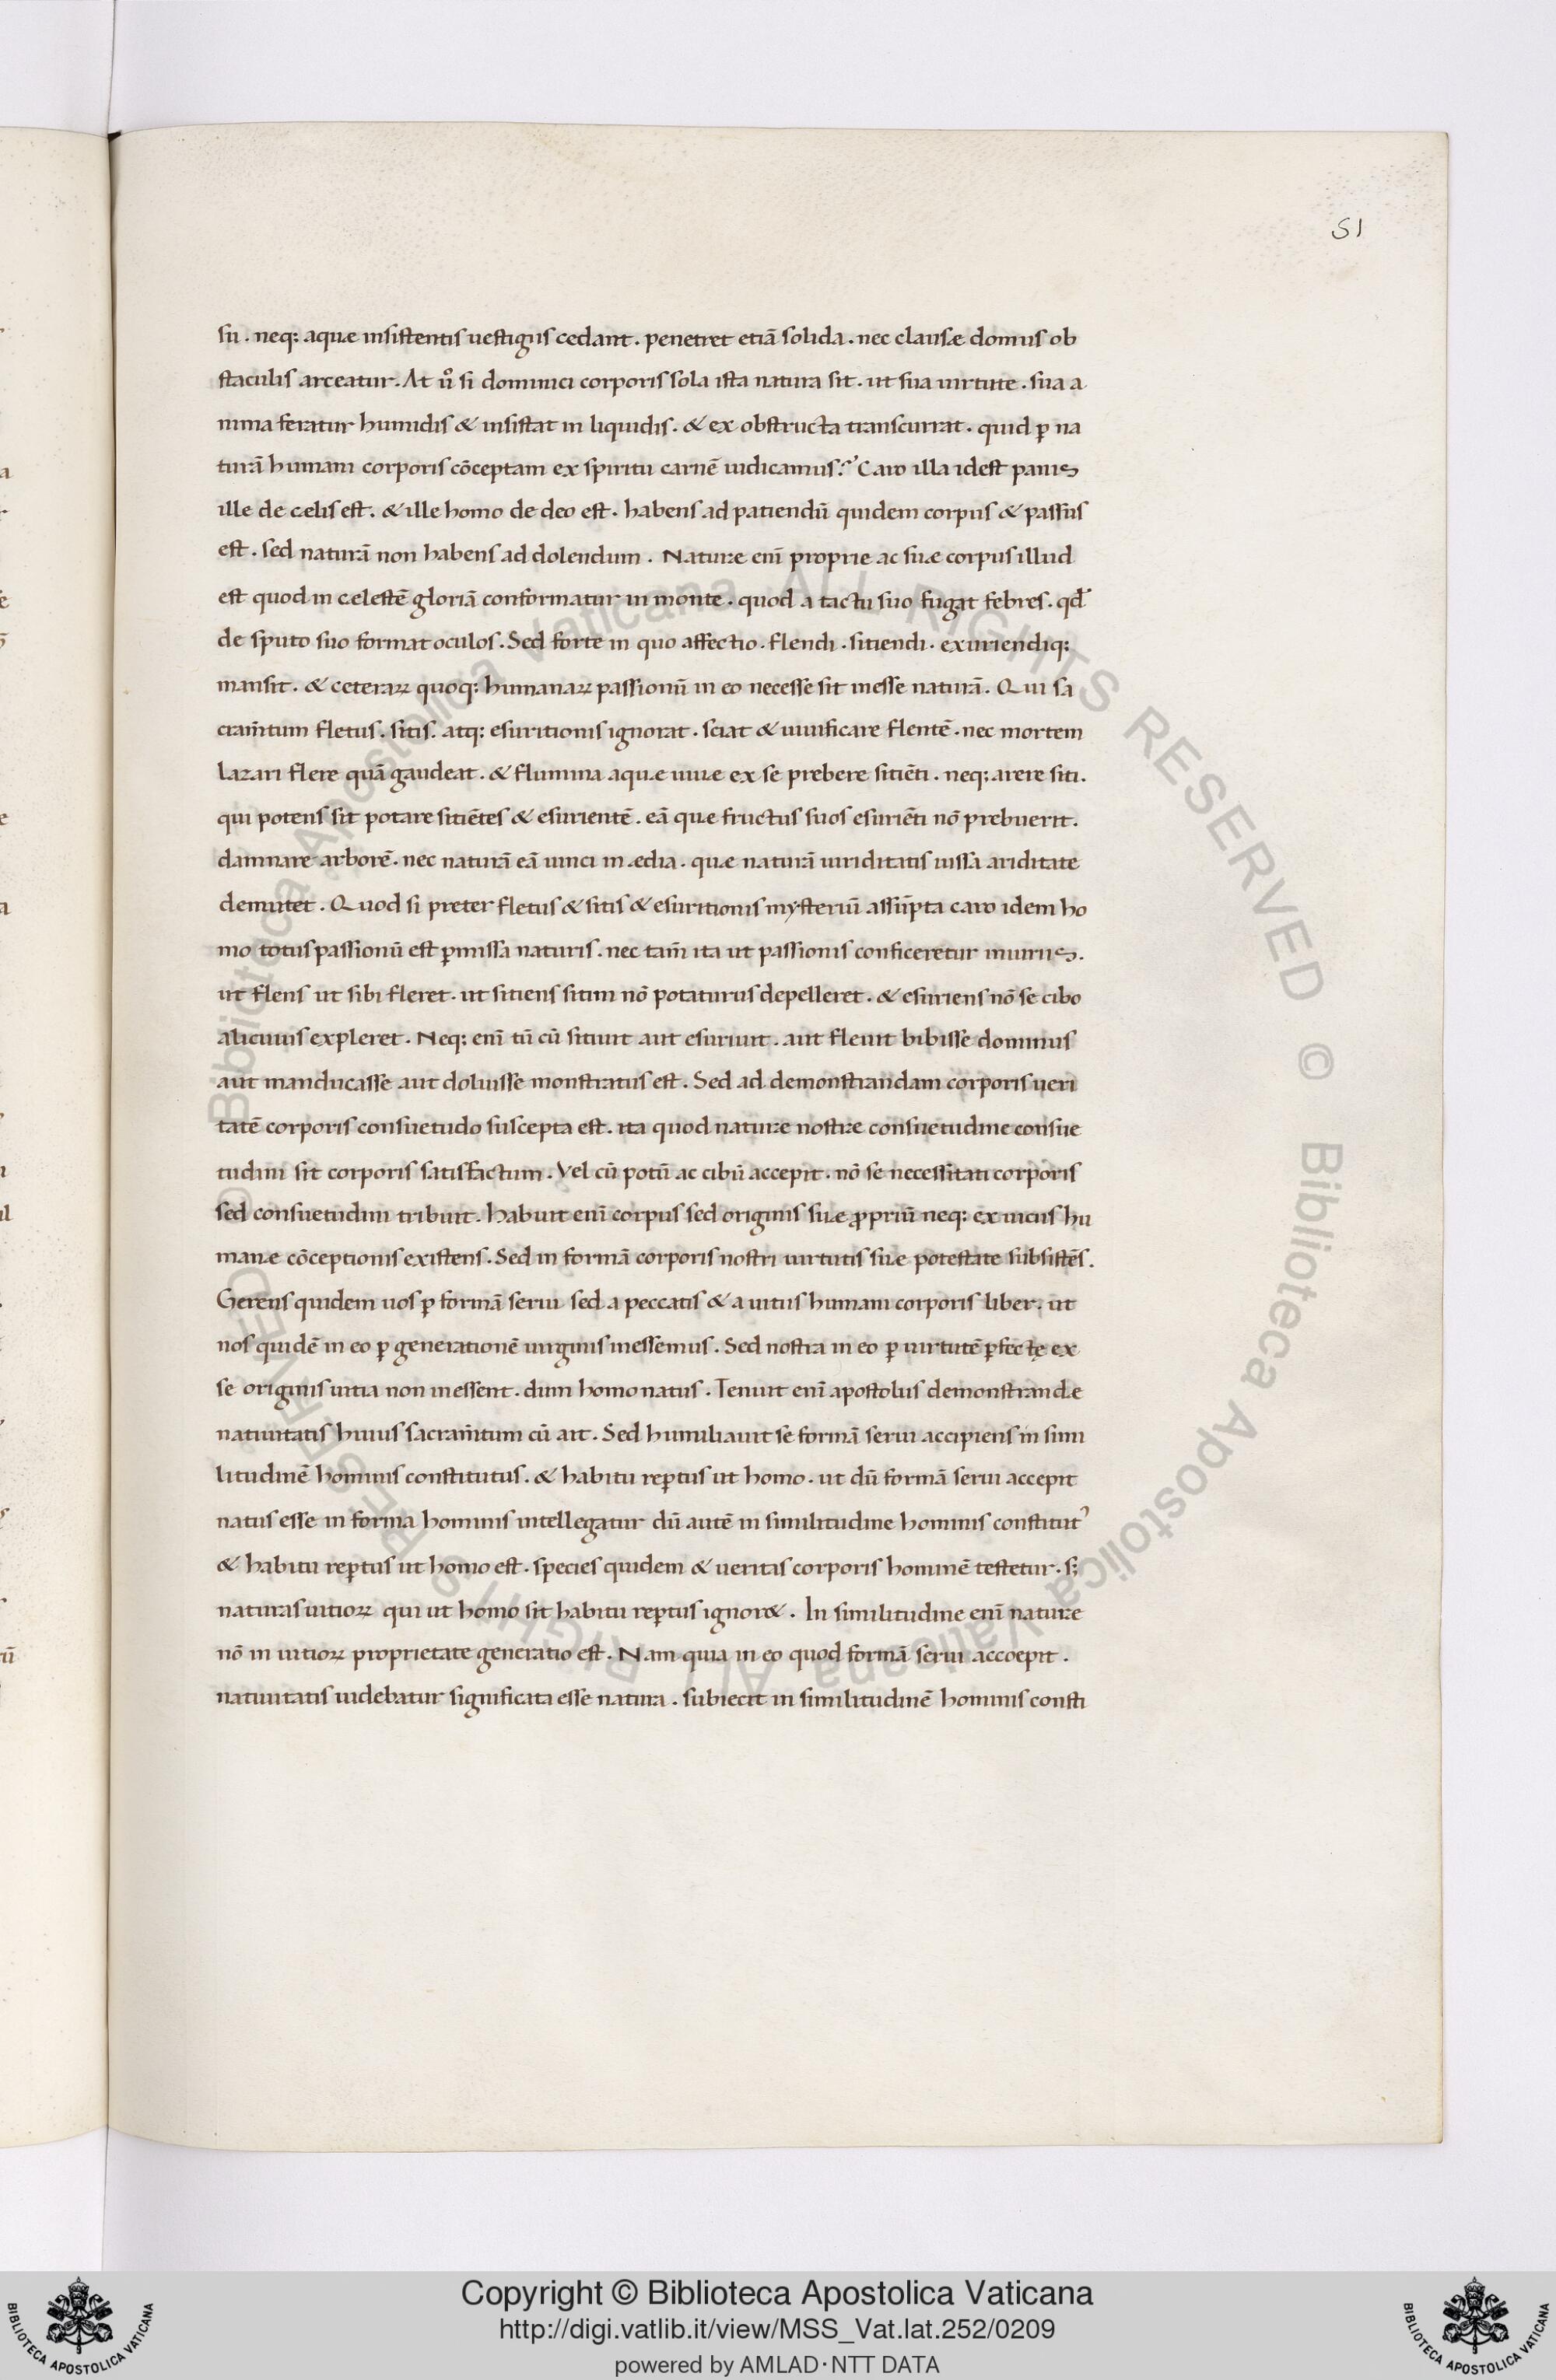 51
su . neq: aquæ insistentis uestigiis cedant . penetret etiā solida . nec clausæ domus ob
staculis arceatur . At ūo si dominici corporis sola ista natura sit . ut sua uirtute . sua a
nima feratur humidis & insistat in liquidis . & ex obstructa transcurrat . quid p̄ na
turā humani corporis cōceptam ex spiritu carnē iudicamus? Caro illa idest panis
ille de cælis est . & ille homo de deo est . habens ad patiendū quidem corpus & passus
est . sed naturā non habens ad dolendum . Naturæ enī proprie ac suæ corpus illud
est quod in cælestē gloriā conformatur in monte . quod a tactu suo fugat febres . qd̄
de sputo suo format oculos . Sed forte in quo affectio . flendi . sitiendi . exuriendiq:
mansit . & ceteraꝝ quoq: humanaꝝ passionū in eo necesse sit inesse naturā . Qui sa
cram̄tum fletus . sitis . atq: esuritionis ignorat . sciat & uiuificare flentē . nec mortem
lazari flere quā gaudeat . & flumina aquæ uiuæ ex se prebere sitiēti . neq: arere siti .
qui potens sit potare sitiētes & esurientē . eā quæ fructus suos esuriēti nō prebuerit .
damnare arborē . nec naturā eā uinci inædia . quæ naturā uiriditatis iussa ariditate
demutet . Quod si preter fletus & sitis & esuritionis mysteriū assūpta caro idem ho
mo totus passionū est p̄missa naturis . nec tam̄ ita ut passionis conficeretur iniuriis .
ut flens ut sibi fleret . ut sitiens sitim nō potaturus depelleret . & esuriens nō se cibo
alicuius expleret . Neq: enī tū cū sitiuit aut esuriuit . aut fleuit bibisse dominus
aut manducasse aut doluisse monstratus est . Sed ad demonstrandam corporis ueri
tatē corporis consuetudo suscepta est . ita quod naturæ nostræ consuetudine consue
tudini sit corporis satisfactum . Vel cū potū ac cibū accepit . nō se necessitati corporis
sed consuetudini tribuit . habuit enī corpus sed originis suæ ꝓpriū neq: ex uiciis hu
manæ cōceptionis existens . Sed in formā corporis nostri uirtutis suæ potestate subsistēs .
Gerens quidem uos p̄ formā serui sed a peccatis & a uitiis humani corporis liber . ut
nos quidē in eo p̄ generationē uirginis inessemus . Sed nostra in eo p̄ uirtutē p̄fectę ex
se originis uitia non inessent . dum homo natus . Tenuit enī apostolus demonstrandæ
natiuitatis huius sacram̄tum cū ait . Sed humiliauit se formā serui accipiens in simi
litudinē hominis constitutus . & habitu rep̄tus ut homo . ut dū formā serui accepit
natus esse in forma hominis intellegatur dū autē in similitudine hominis constitutꝰ
& habitu rep̄tus ut homo est . species quidem & ueritas corporis hominē testetur . s;
naturas uitioꝝ qui ut homo sit habitu rep̄tus ignor& . In similitudine enī naturæ
nō in uitioꝝ proprietate generatio est . Nam quia in eo quod formā serui accoepit .
natiuitatis uidebatur significata esse natura . subiecit in similitudinē hominis consti
© Biblioteca Apostolica Vaticana ALL RIGHTS RESERVED © Biblioteca Apostolica Vaticana ALL RIGHTS RESERVED
Copyright © Biblioteca Apostolica Vaticana
http://digi.vatlib.it/view/MSS_Vat.lat.252/0209
powered by AMLAD·NTT DATA
BIBLIOTECA APOSTOLICA VATICANA
BIBLIOTECA APOSTOLICA VATICANA